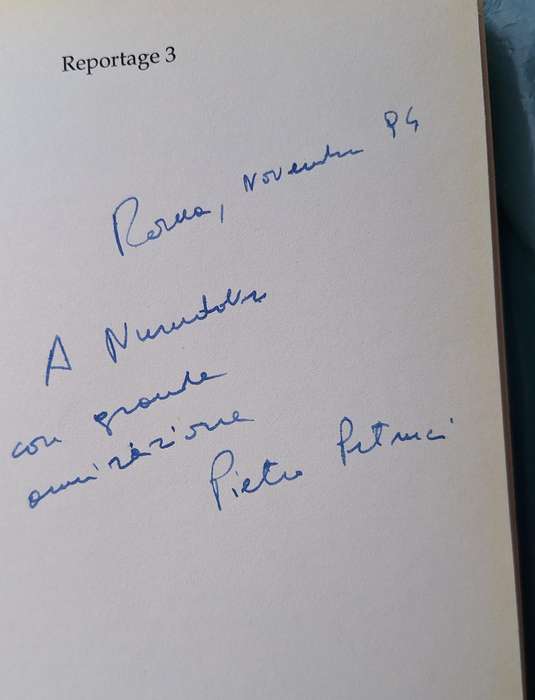 Reportage 3
Roma, Novembre 94
A
con grande
ammirazione
Pietro Petrucci